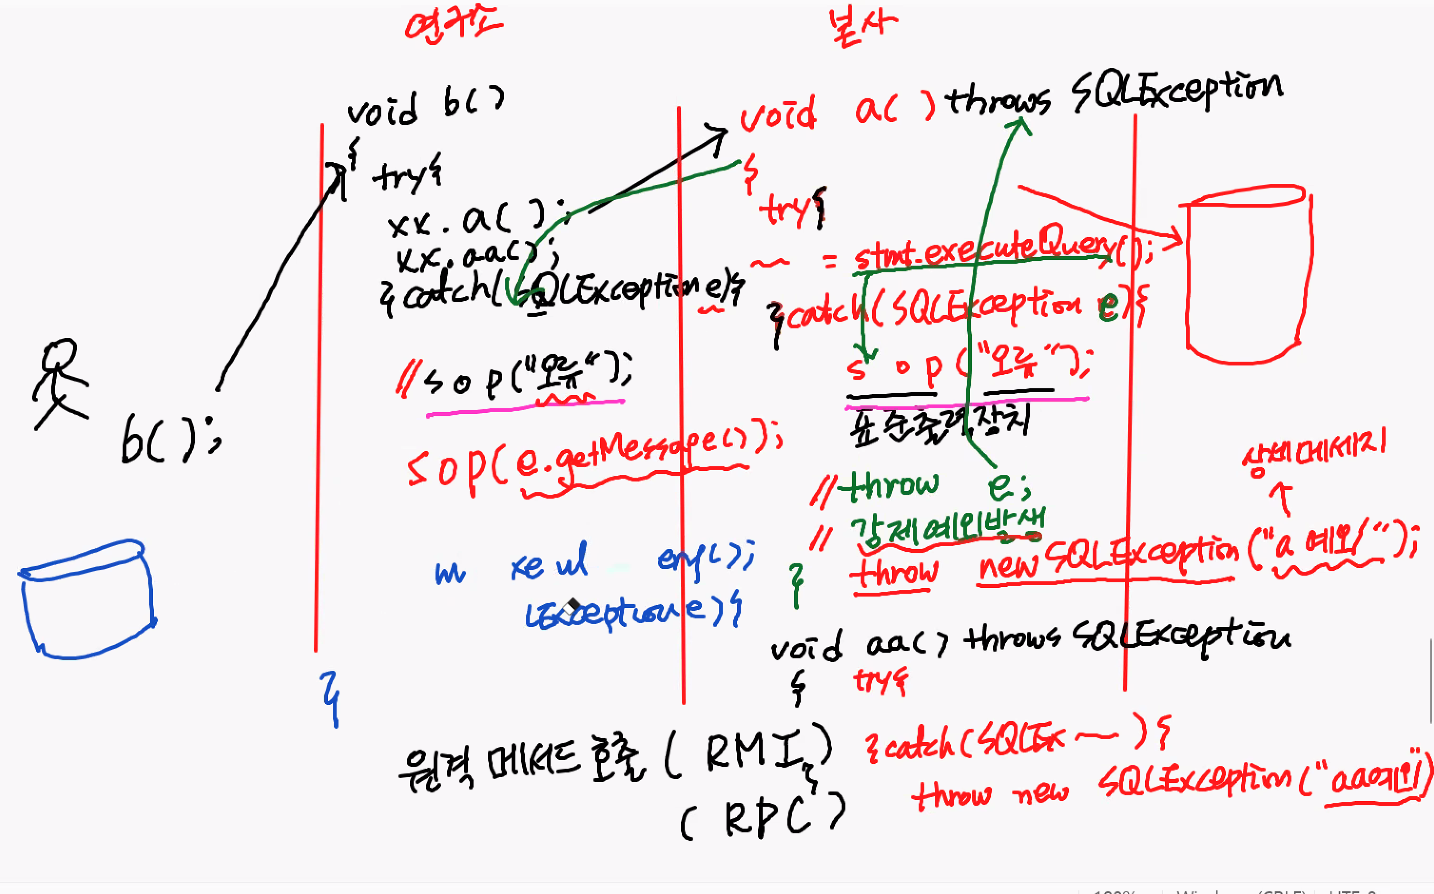 연구소
본사
void b()
{
try{
xx.a();
xx.aa();
}catch(SQLException e){
//sop("오류");
sop(e.getMessage());
}
b();
void a() throws SQLException
{
try{
= stmt.executeQuery();
}catch(SQLException e){
sop("오류");
표준출력장치
//throw e;
// 강제예외발생
throw new SQLException("a 예외");
상세메세지
}
void aa() throws SQLException
{ try{
}catch(SQLEx ~){
throw new SQLException("aa예외")
}
원격 메서드 호출 (RMI)
(RPC)